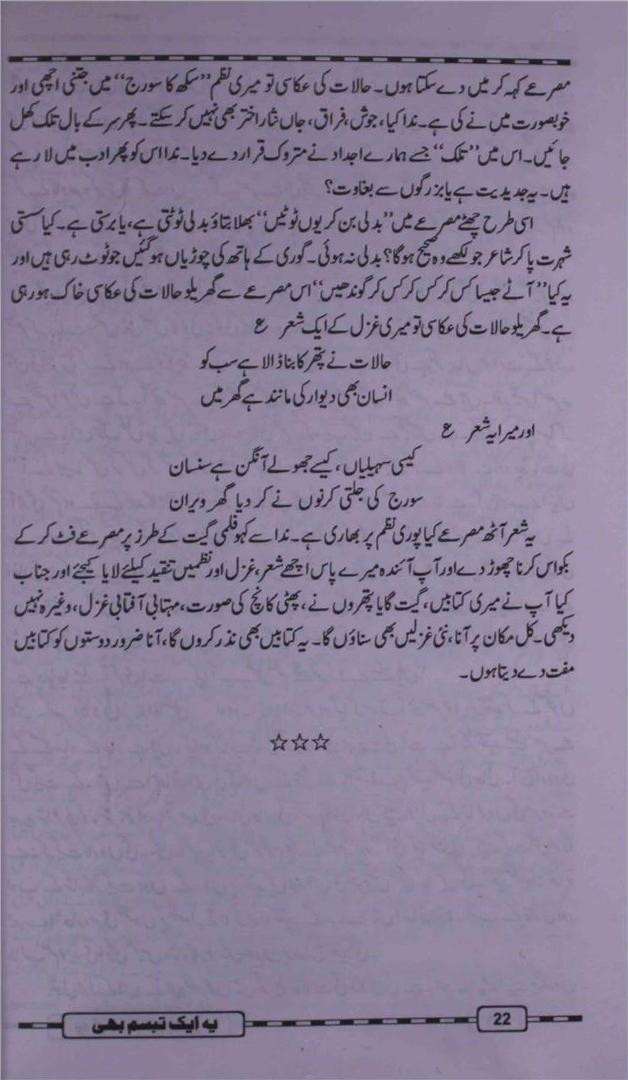 مصرعے کہہ کر میں دے سکتا ہوں۔ حالات کی عکاسی تو میری نظم ”سکھ کا سورج“ میں جتنی اچھی اور
خوبصورت میں نے کی ہے۔ ندا کیا، جوش، فراق، جاں نثار اختر بھی نہیں کر سکتے۔ پھر سر کے بال تلک کھل
جائیں۔ اس میں ”تلک“ جسے ہمارے اجداد نے متروک قرار دے دیا۔ ندا اس کو پھر ادب میں لا رہے
ہیں۔ یہ جدیدیت ہے یا بزرگوں سے بغاوت؟
اسی طرح چھٹے مصرعے میں ”بدلی بن کر یوں ٹوٹیں“ بھلا بتاؤ بدلی ٹوٹتی ہے، یا برستی ہے۔ کیا سستی
شہرت پا کر شاعر جو لکھے وہ صحیح ہوگا؟ بدلی نہ ہوئی۔ گوری کے ہاتھ کی چوڑیاں ہوگئیں جو ٹوٹ رہی ہیں اور
یہ کیا ”آٹے جیسا کس کر کس کر کس کر گوندھیں“ اس مصرعے سے گھریلو حالات کی عکاسی خاک ہو رہی
ہے۔ گھریلو حالات کی عکاسی تو میری غزل کے ایک شعر ع
حالات نے پتھر کا بنا ڈالا ہے سب کو
انسان بھی دیوار کی مانند ہے گھر میں
اور میرا یہ شعر ع
کیسی سہیلیاں، کیسے جھولے آنگن ہے سنسان
سورج کی جلتی کرنوں نے کر دیا گھر ویران
یہ شعر آٹھ مصرعے کیا پوری نظم پر بھاری ہے۔ ندا سے کہو فلمی گیت کے طرز پر مصرعے فٹ کر کے
بکواس کرنا چھوڑ دے اور آپ آئندہ میرے پاس اچھے شعر، غزل اور نظمیں تنقید کیلئے لایا کیجئے اور جناب
کیا آپ نے میری کتابیں، گیت گایا پتھروں نے، پھٹی کانچ کی صورت، مہتابی آفتابی غزل، وغیرہ نہیں
دیکھی۔ کل مکان پر آنا، نئی غزلیں بھی سناؤں گا۔ یہ کتابیں بھی نذر کروں گا، آنا ضرور دوستوں کو کتابیں
مفت دے دیتا ہوں۔
☆☆☆
یہ ایک تبسم بھی
22